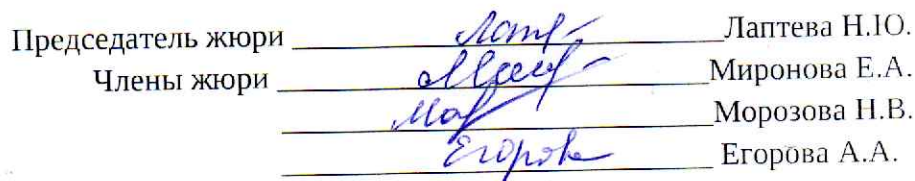 Председатель жюри Лаптева Н.Ю.
Члены жюри Миронова Е.А.
Морозова Н.В.
Егорова Егорова А.А.